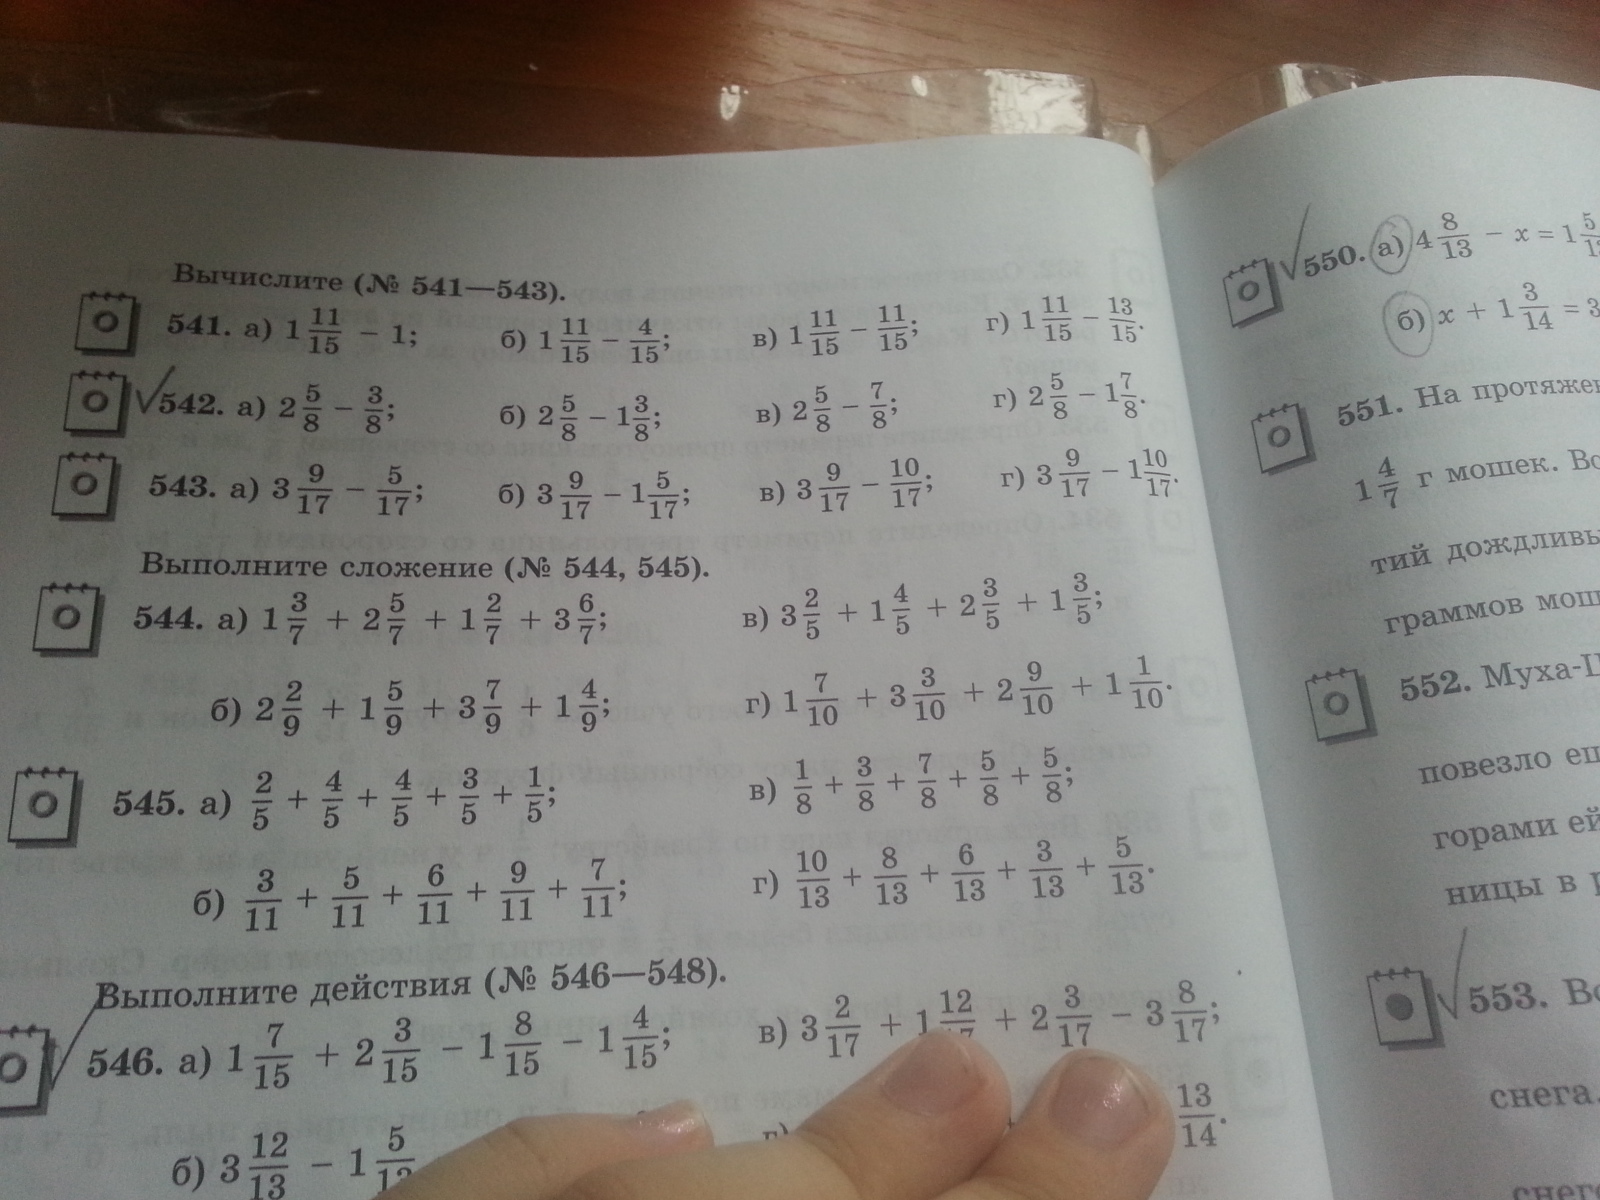 Вычислите (№ 541—543).
541. а) 1 11/15 − 1; б) 1 11/15 − 4/15; в) 1 11/15 − 11/15; г) 1 11/15 − 13/15.
542. а) 2 5/8 − 3/8; б) 2 5/8 − 1 3/8; в) 2 5/8 − 7/8; г) 2 5/8 − 1 7/8.
543. а) 3 9/17 − 5/17; б) 3 9/17 − 1 5/17; в) 3 9/17 − 10/17; г) 3 9/17 − 1 10/17.
Выполните сложение (№ 544, 545).
544. а) 1 3/7 + 2 5/7 + 1 2/7 + 3 6/7; в) 3 2/5 + 1 4/5 + 2 3/5 + 1 3/5;
б) 2 2/9 + 1 5/9 + 3 7/9 + 1 4/9; г) 1 7/10 + 3 3/10 + 2 9/10 + 1 1/10.
545. а) 2/5 + 4/5 + 4/5 + 3/5 + 1/5; в) 1/8 + 3/8 + 7/8 + 5/8 + 5/8;
б) 3/11 + 5/11 + 6/11 + 9/11 + 7/11; г) 10/13 + 8/13 + 6/13 + 3/13 + 5/13.
Выполните действия (№ 546—548).
546. а) 1 7/15 + 2 3/15 − 1 8/15 − 1 4/15; в) 3 2/17 + 1 12/17 + 2 3/17 − 3 8/17;
б) 3 12/13 − 1 5/13 г) 13/14.
550. а) 4 8/13 − x = 1
б) x + 1 3/14 = 3
551. На
1 4/7 г мошек.
тий
граммов
552.
повезло
горами ей
ницы в
553.
снега.